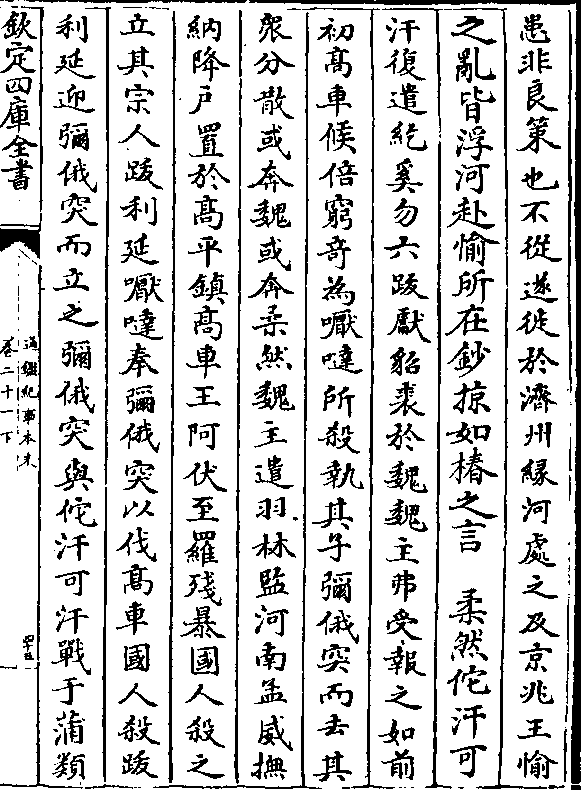 患非良策也不從遂徙於濟州縁河處之及京兆王愉
之亂皆浮河赴愉所在鈔掠如椿之言　柔然佗汗可
汗復遣紇奚勿六跋獻貂裘於魏魏主弗受報之如前
初髙車候倍窮竒為嚈噠所殺執其子彌俄突而去其
衆分散或奔魏或奔柔然魏主遣羽林監河南孟威撫
納降戶置於髙平鎮髙車王阿伏至羅殘暴國人殺之
立其宗人跋利延嚈噠奉彌俄突以伐髙車國人殺跋
利延迎彌俄突而立之彌俄突與佗汗可汗戰于蒲類
欽定四庫全書
通鑑紀事本末
卷二十一下